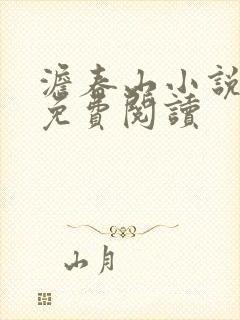 澹春山小說
免費閱讀
山月